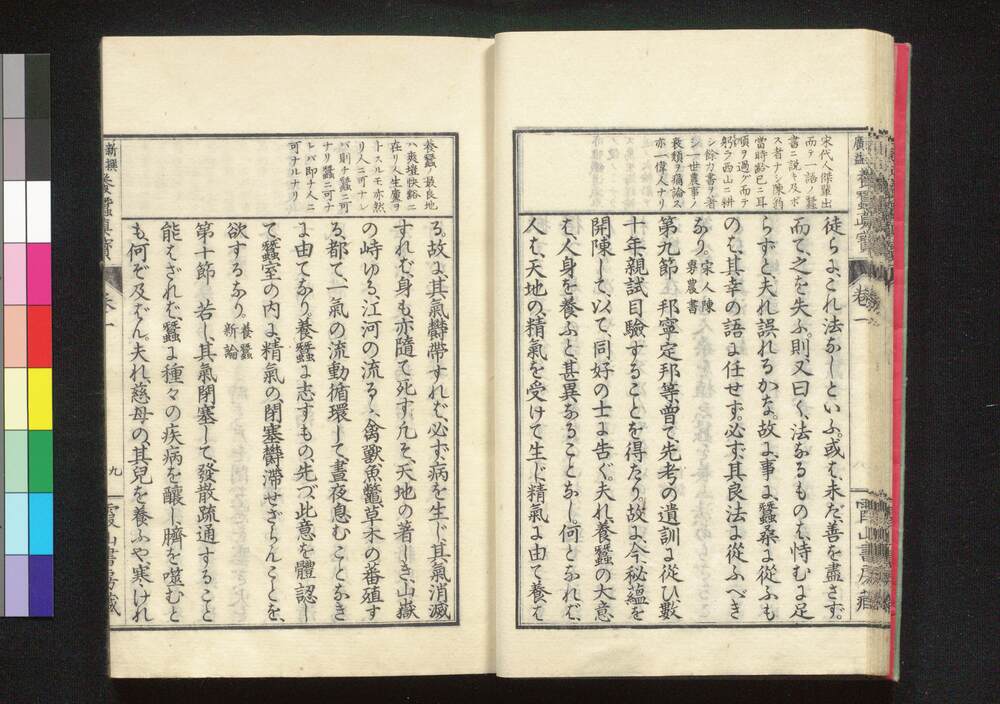 宋代人傑輩出
而テ一語ノ蠶
書ニ説キ及ボ
ス者ナシ陳旉
當時齡已ニ耳
順ヲ過グ而テ
躬ラ西山ニ耕
シ餘力書ヲ著
シ一世農事ノ
衰頽ヲ痛論ス
亦一偉人ナリ
徒らに、これ法なしといふ。或は、未だ、善を盡さず。
而て、之を失ふ、則又曰く、法なるものは、恃むに足
らずと、夫れ誤れるかな。故に、事に、蠶桑に從ふも
のは、其幸の語に任せず。必ず、其良法に從ふべき
なり。宋人陳
旉農書
第九節 邦寧、定邦等、曽て、先考の遺訓に從ひ、數
十年親試目驗することを得たり。故に、今、秘蘊を
開陳して、以て、同好の士に告ぐ。夫れ、養蠶の大意
は、人身を養ふと、甚異なることなし。何となれば、
人は、天地の、精氣を受けて生じ、精氣に由て養は
養蠶ノ最良地
ハ爽塏快豁ニ
在リ人生廬ヲ
トスルモ亦然
リ人ニ可ナレ
バ則チ蠶ニ可
ナリ蠶ニ可ナ
レバ即チ人ニ
可ナルナリ
る。故に、其氣欝滯すれば、必ず、病を生じ、其氣消滅
すれば、身も、亦隨て死す。凡そ、天地の著しき、山嶽
の峙ゆる、江河の流るゝ、禽獸、魚鼈、草木の蕃殖す
る、都て、一氣の流動循環して、晝夜息むことなき
に由てなり。養蠶に志すもの、先づ、此意を體認し
て、蠶室の内に、精氣の、閉塞欝滯せざらんことを、
欲するなり。養蠶
新論
第十節 若し、其氣閉塞して、發散疏通すること
能はざれば、蠶に種々の疾病を釀し、臍を噬むと
も、何ぞ及ばん。夫れ、慈母の、其兒を養ふや、寒けれ
九